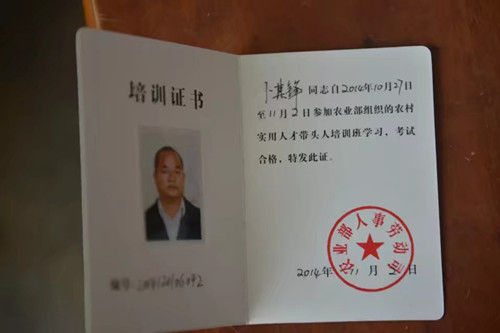 培训证书
卜其静 同志自2014年10月27日
至11月2日参加农业部组织的农村
实用人才带头人培训班学习，考试
合格，特发此证。
农业部人事劳动司
2014年11月2日
编号：